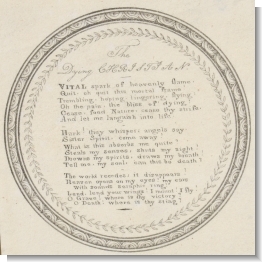 The
Dying CHRISTIAN.
VITAL spark of heavenly flame
Quit, oh quit this mortal frame
Trembling, hoping, lingering, flying,
Oh the pain, the bliss of dying
Cease, fond Nature, cease thy strife,
And let me languish into life.
Hark! they whisper; angels say,
Sister Spirit, come away.
What is this absorbs me quite
Steals my senses, shuts my sight,
Drowns my spirits, draws my breath?
Tell me, my soul, can this be death?
The world recedes; it disappears
Heaven opens on my eyes; my ears
With sounds seraphic ring,
Lend, lend your wings! I mount! I fly!
O Grave! where is thy victory?
O Death! where is thy sting?